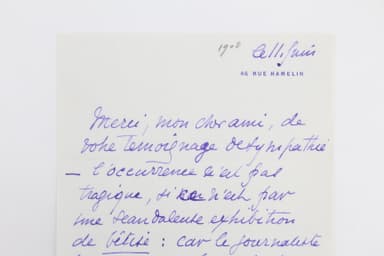 1900
Ce 11. Juin
46 RUE HAMELIN
Merci, mon cher ami, de
votre témoignage de sympathie
— l'occurrence n'est pas
tragique, si ce n'est par
une scandaleuse exhibition
de bêtise : car le journaliste